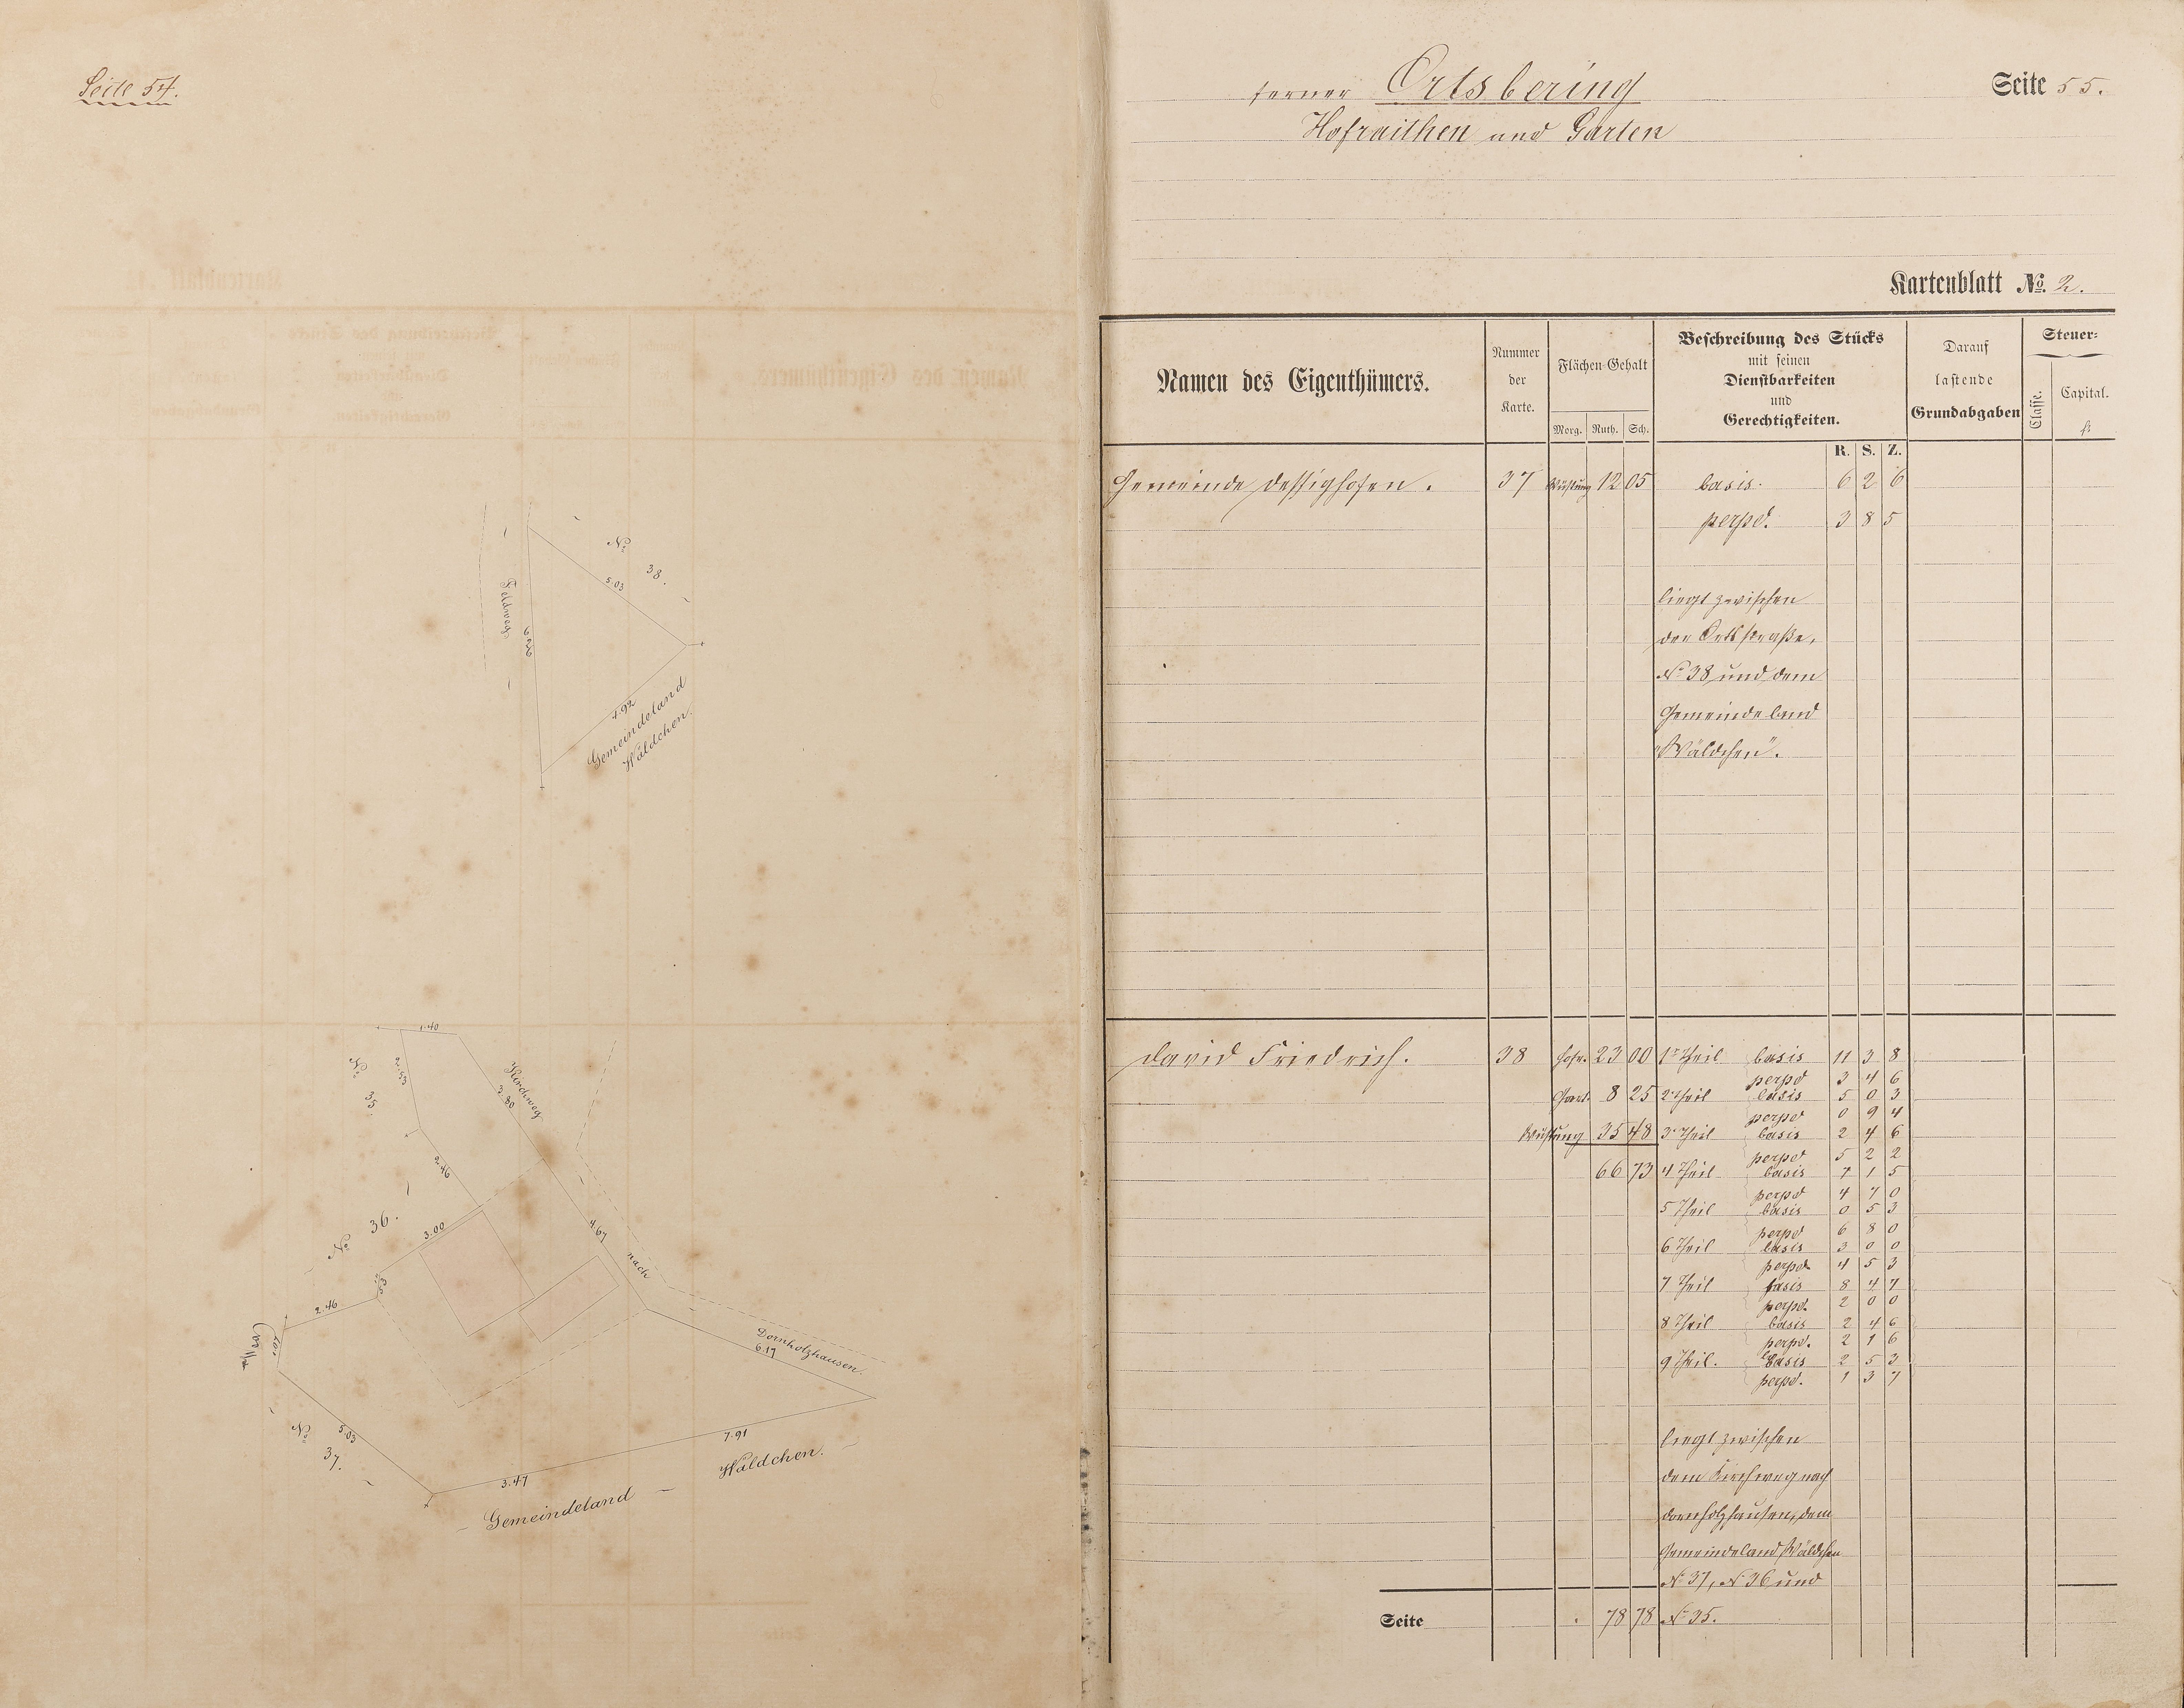 Seite 54.
No
38.
5.03
Feldweg
6.26
4.92
Gemeindeland
Wäldchen.
1.40
No
35
2.53
Kirchweg
3.80
2.46
No
36.
3.00
4.67
nach
2.46
Dornholzhausen.
6.17
No
37.
5.03
7.91
3.47
Gemeindeland
Wäldchen.
ferner Ortsbering
Seite 55.
Hofraithen und Garten
Kartenblatt No. 2.
Namen des Eigenthümers.
Nummer der Karte.
Flächen-Gehalt
Morg. Ruth. Sch.
Beschreibung des Stücks
mit seinen
Dienstbarkeiten
und
Gerechtigkeiten.
Darauf
lastende
Grundabgaben
Steuer-
Classe.
Capital.
fl.
R. S. Z.
Gemeinde Dessighofen. 37 Wüstung 12 05 basis. 6 2 6
perpd. 3 8 5
liegt zwischen
der Ortsstraße,
No 38 und dem
Gemeindeland
"Wäldchen".
David Friedrich. 38 Hofr. 23 00 1r Theil basis 11 3 8
perpd 3 4 6
Gart. 8 25 2r Theil basis 5 0 3
perpd 0 9 4
Wüstung 35 48 3r Theil basis 2 4 6
perpd 5 2 2
66 73 4 Theil basis 7 1 5
perpd 4 7 0
5 Theil basis 0 5 3
perpd 6 8 0
6 Theil basis 3 0 0
perpd 4 5 3
7 Theil basis 8 4 7
perpd. 2 0 0
8 Theil basis 2 4 6
perpd. 2 1 6
9 Theil. basis 2 5 3
perpd. 1 3 7
liegt zwischen
dem Kirchweg nach
Dornholzhausen, dem
Gemeindeland Wäldchen
No 37, No 36 und
Seite 78 78 No 35.